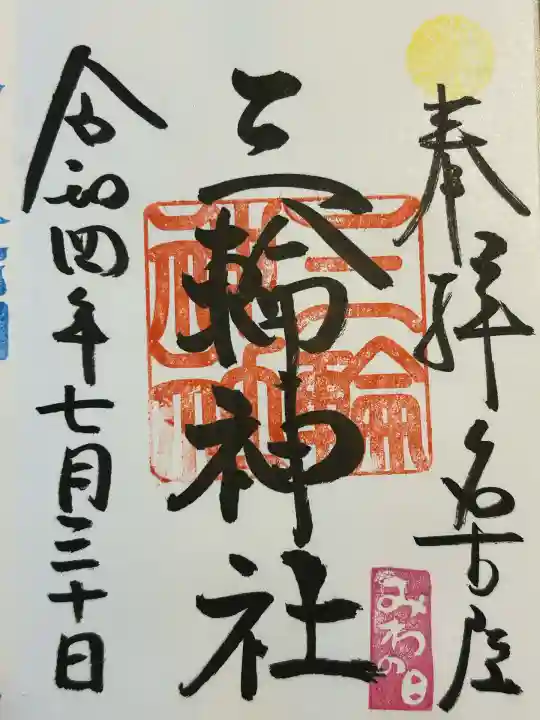 奉拝 名古屋
みわの日
三輪神社
三輪神社
令和四年七月三十日